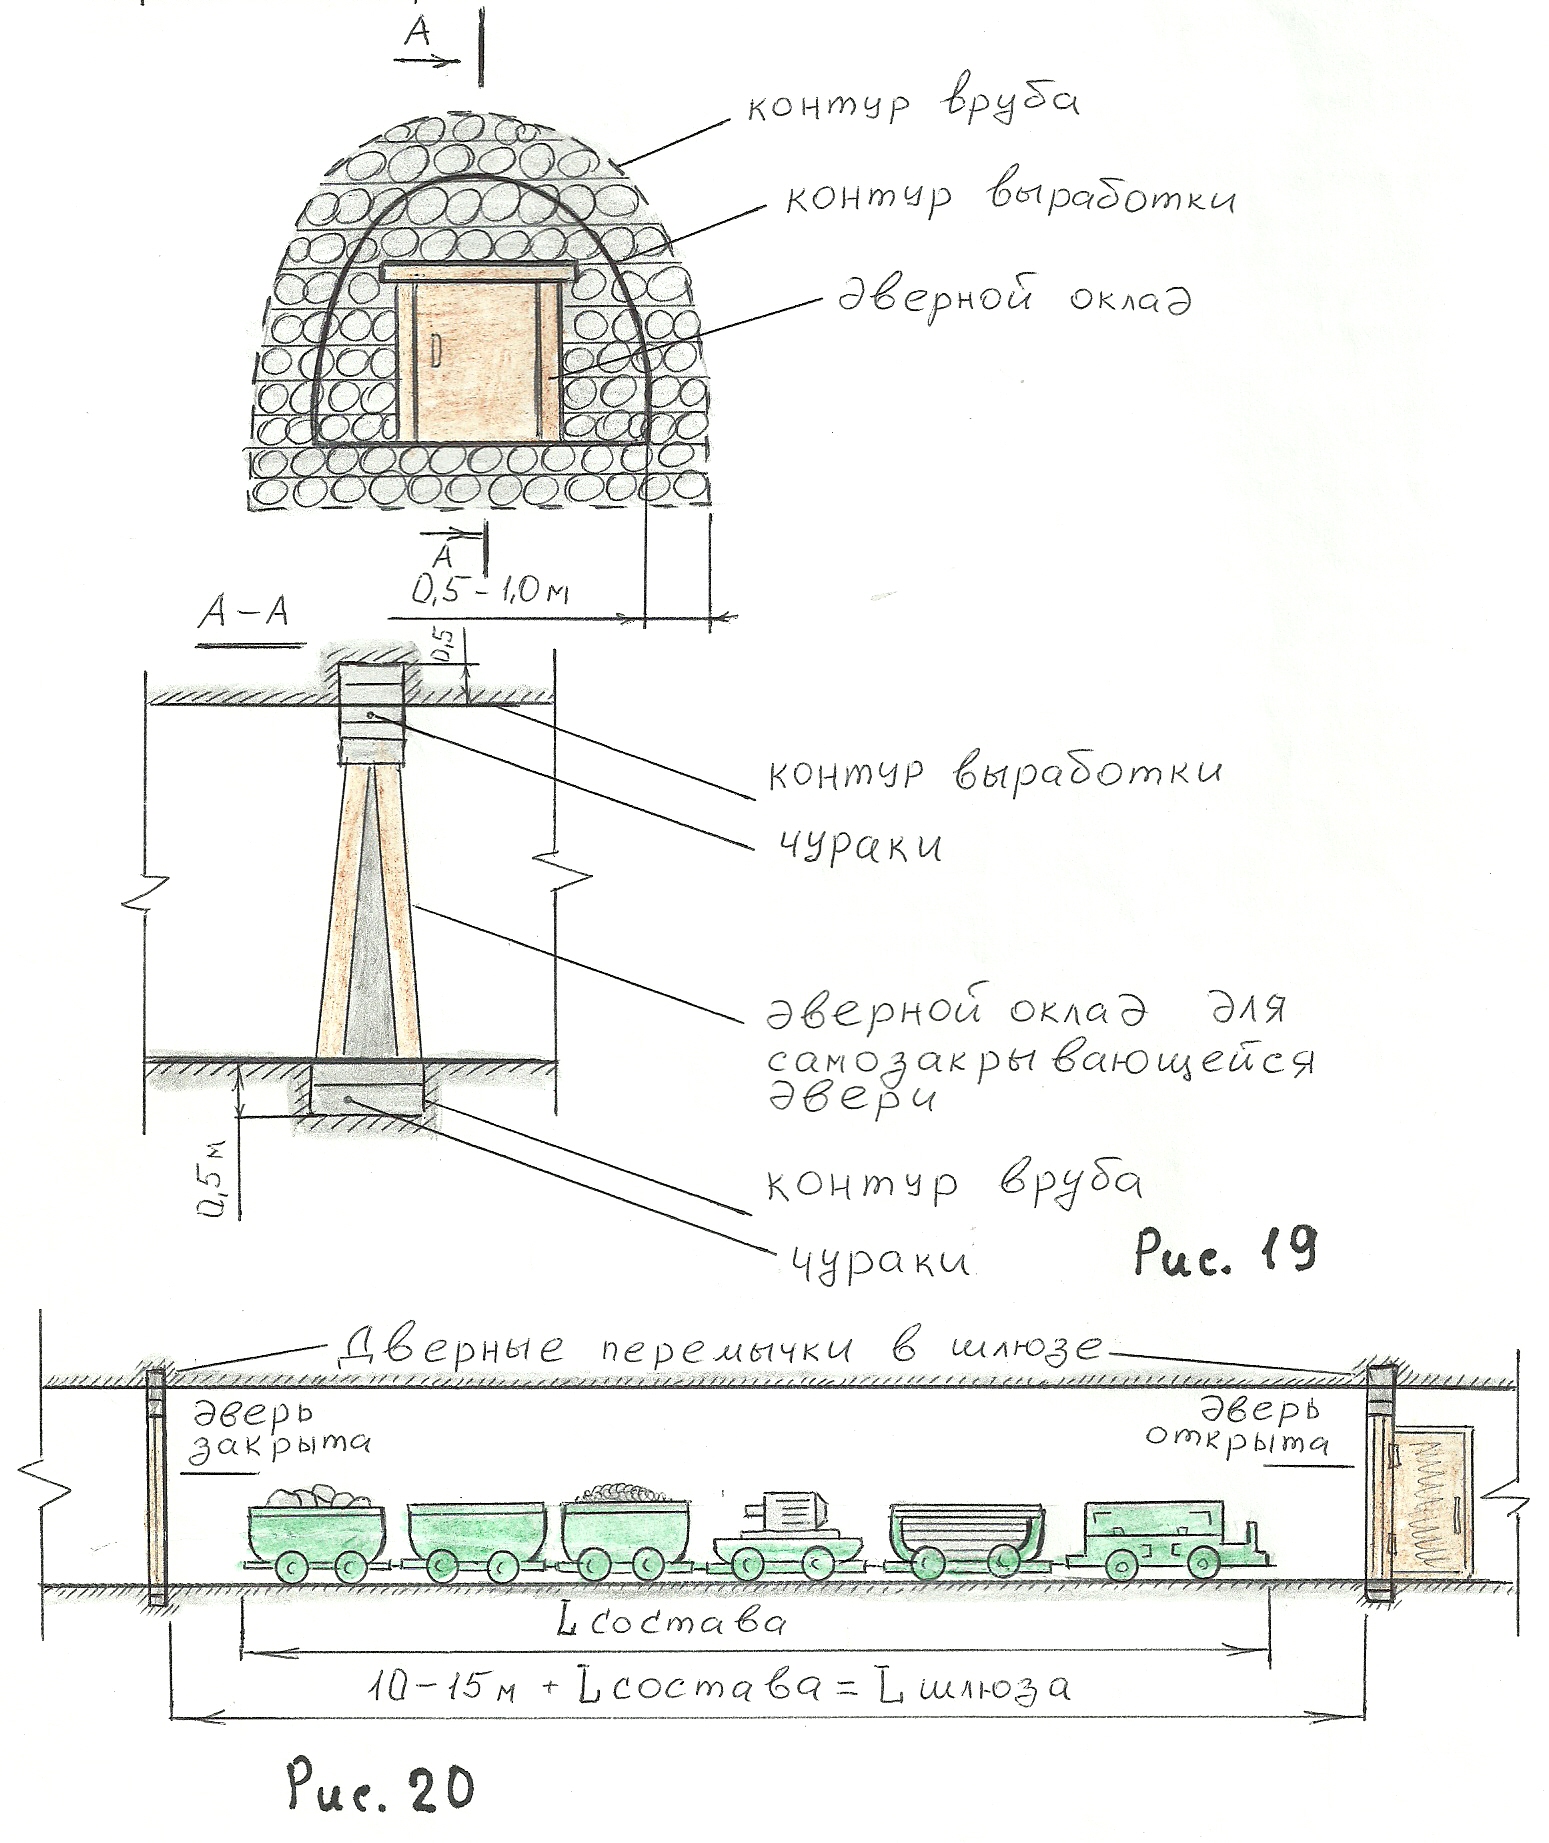 А
контур вруба
контур выработки
дверной оклад
А
0,5-1,0 м
А-А
0,5
контур выработки
чураки
дверной оклад для
самозакрывающейся
двери
0,5 м
контур вруба
чураки
Рис. 19
Дверные перемычки в шлюзе
дверь
закрыта
дверь
открыта
L состава
10-15 м + L состава = L шлюза
Рис. 20